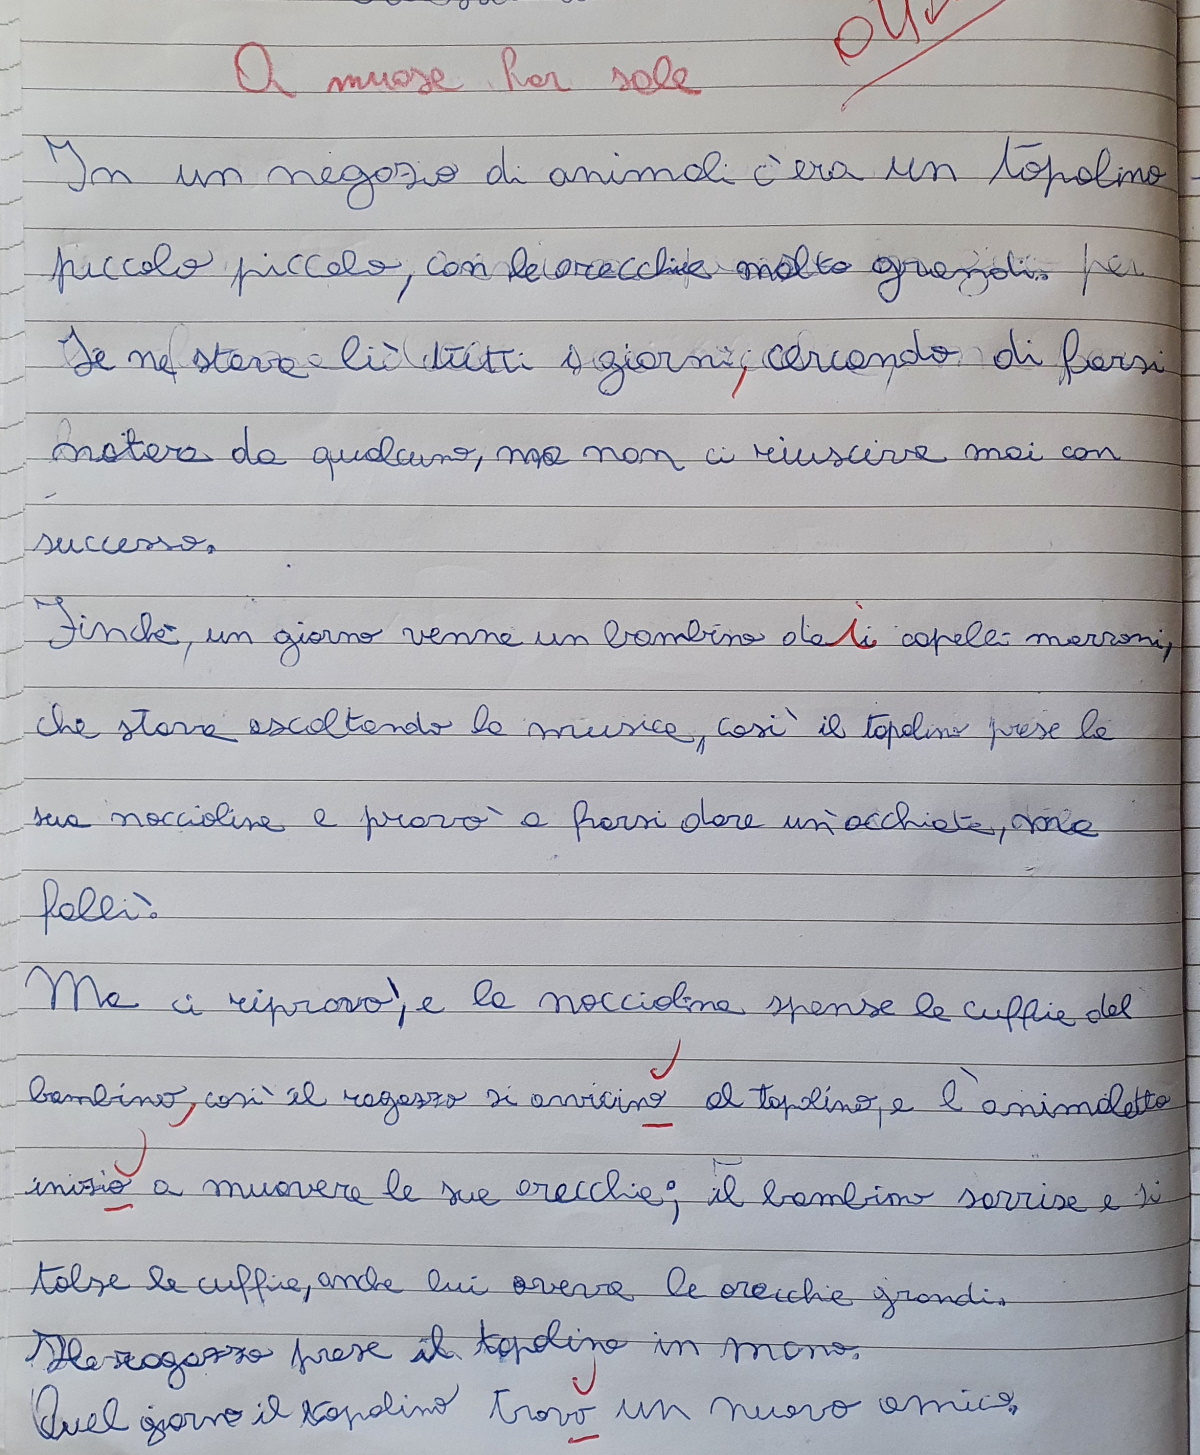 A muose for sale
In un negozio di animali c'era un topolino
piccolo piccolo, con le orecchie molto grandi. per
Se ne stava lì tutti i giorni, cercando di farsi
notare da qualcuno, ma non ci riusciva mai con
successo.
Finché, un giorno venne un bambino dali capelli marroni,
che stava ascoltando la musica, così il topolino prese la
sua nocciolina e provò a farsi dare un'occhiata, ma
fallì.
Ma ci riprovò, e la nocciolina spense le cuffie del
bambino, così il ragazzo si avvicinò al topolino, e l'animaletto
iniziò a muovere le sue orecchie; il bambino sorrise e si
tolse le cuffie, anche lui aveva le orecchie grandi.
Il ragazzo prese il topolino in mano.
Quel giorno il topolino trovò un nuovo amico.